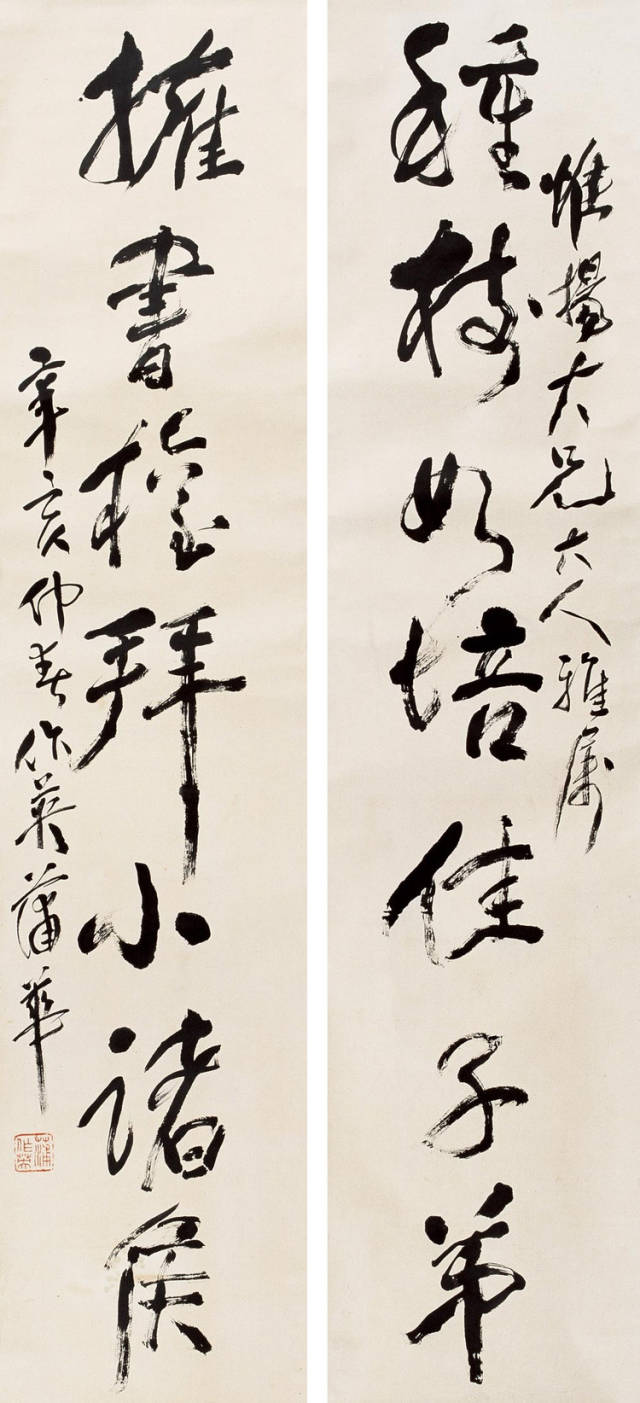 惟揚大兄大人雅屬
種樹如培佳子弟
擁書權拜小諸侯
辛亥仲春作英蒲華
蒲作英